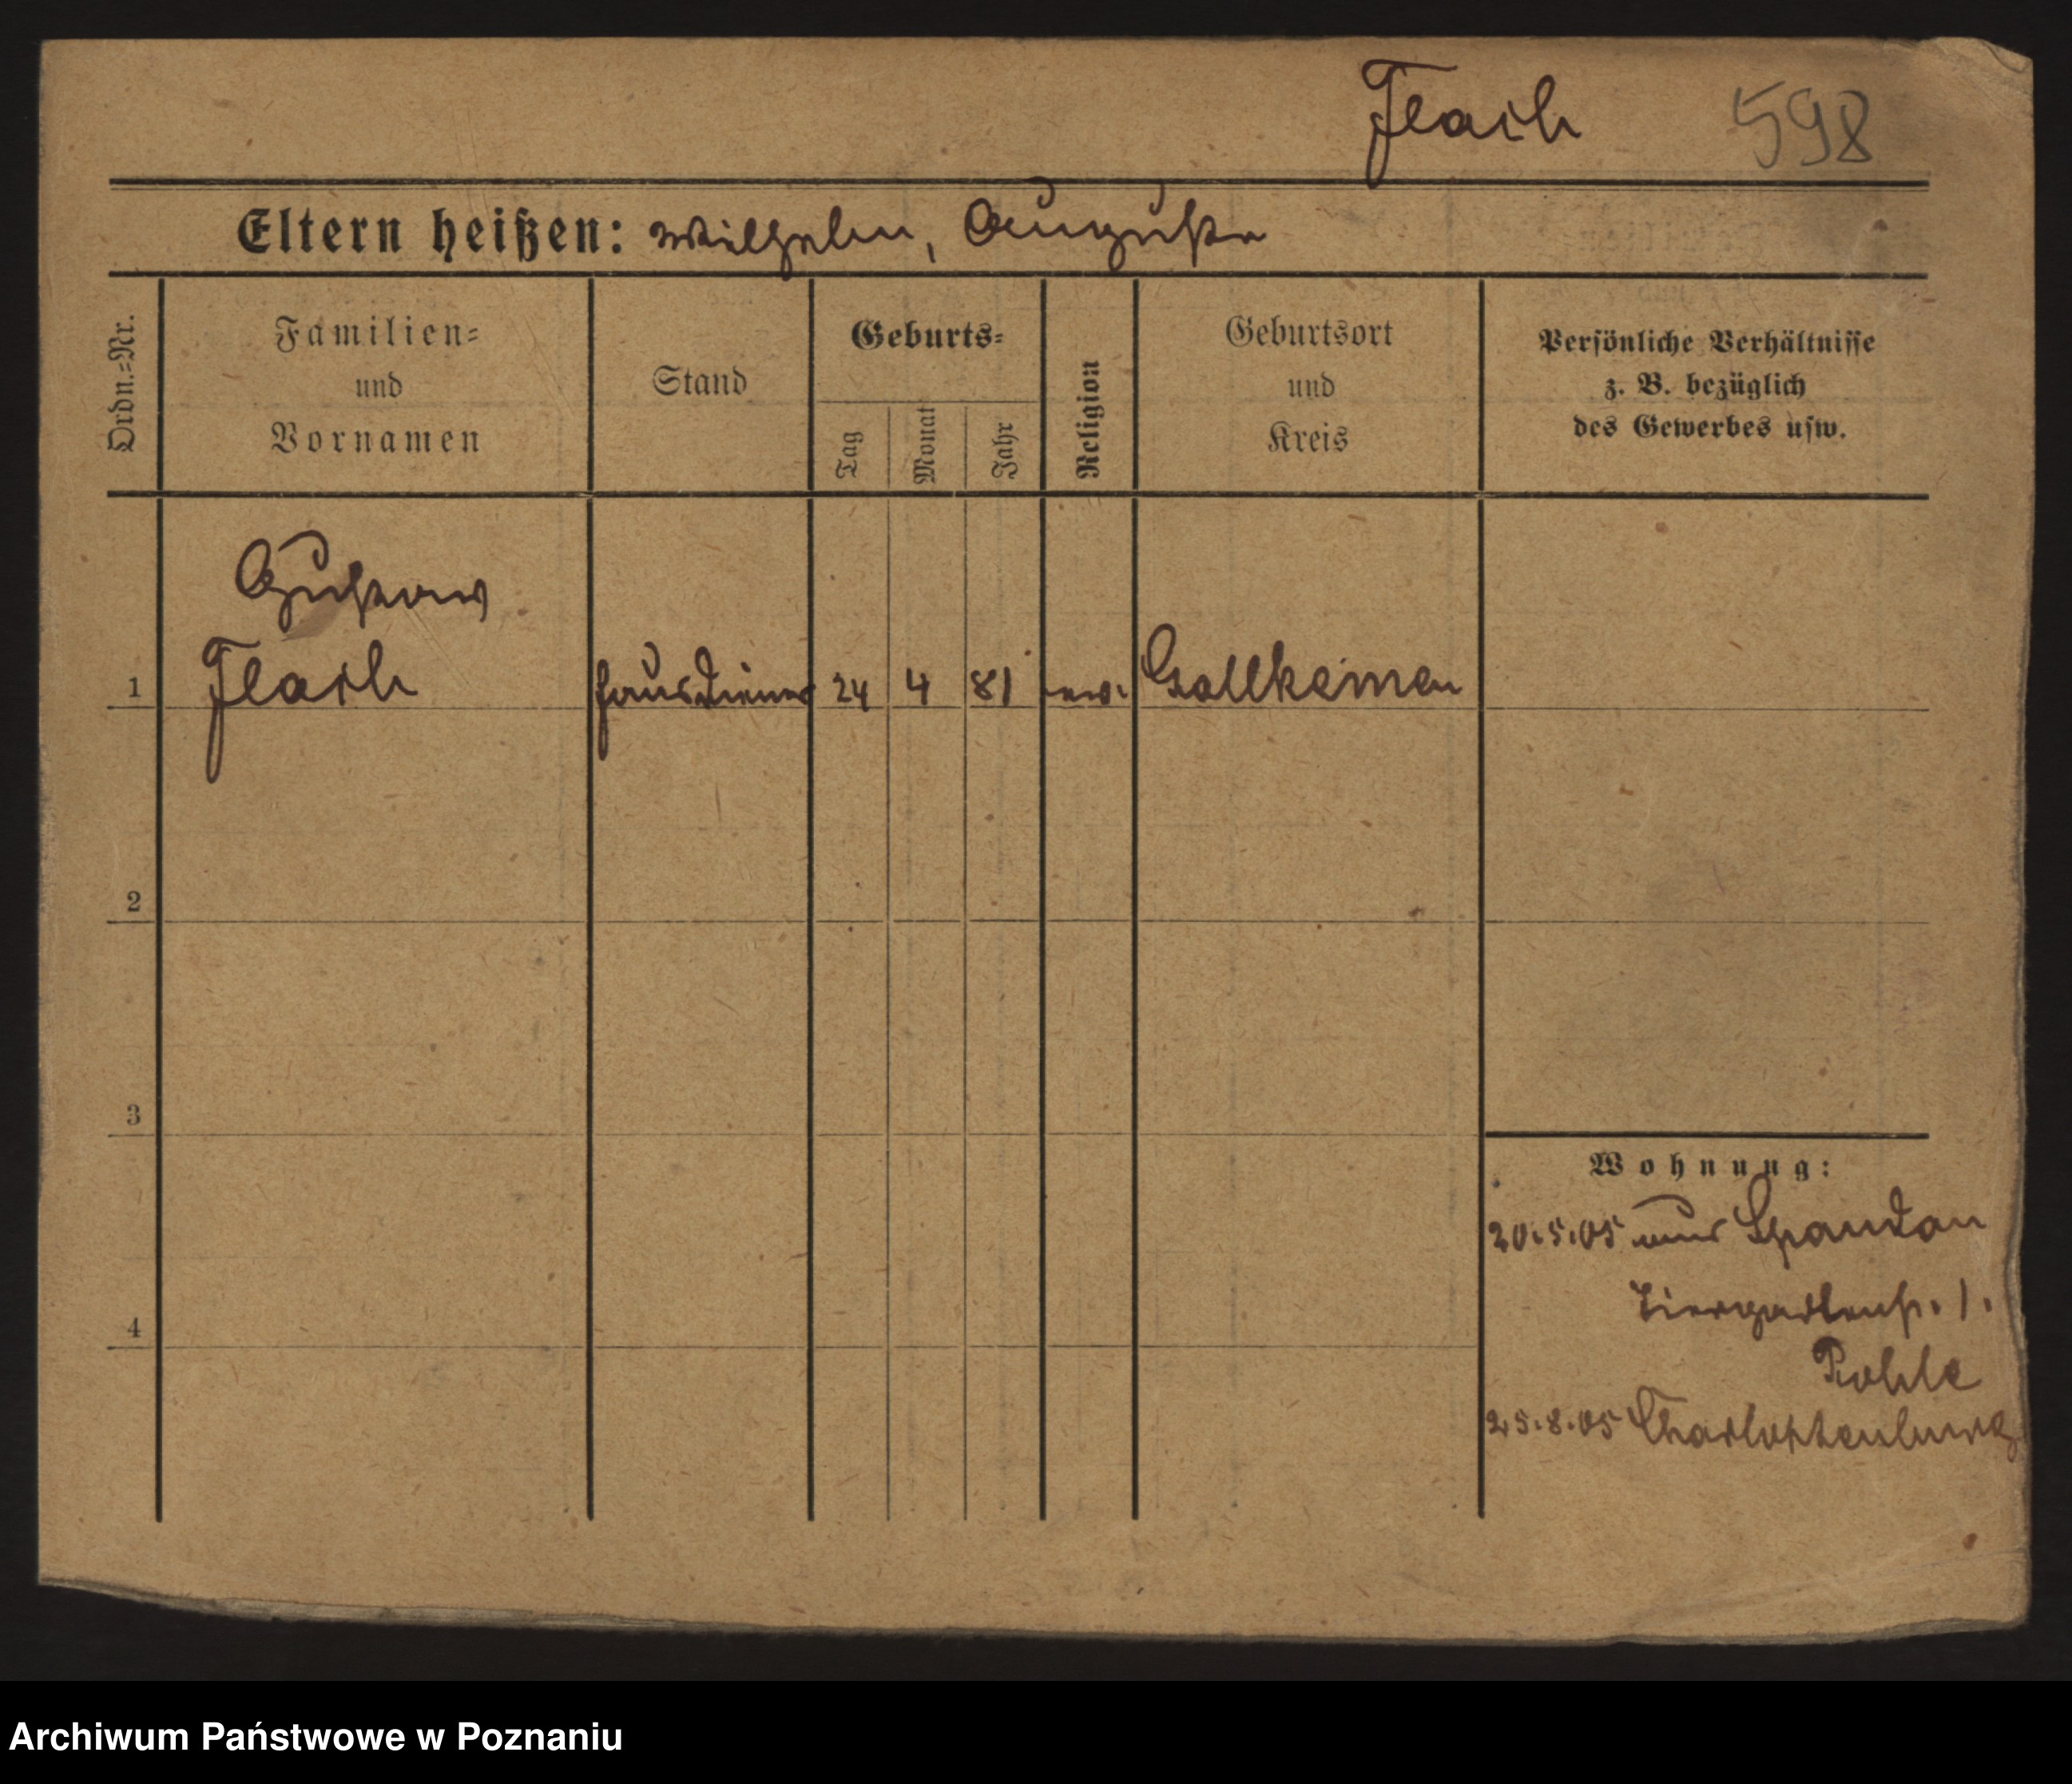 Flach 598
Eltern heißen: Wilhelm, Auguste
Ordn.-Nr.
Familien-
und
Vornamen
Stand
Geburts-
Tag
Monat
Jahr
Religion
Geburtsort
und
Kreis
Persönliche Verhältnisse
z. B. bezüglich
des Gewerbes usw.
Gustav
1 Flach Hausdiener 24 4 81 ev. Gallkeimen
2
3
4
Wohnung:
20.5.05 aus Spandau
Tiergartenstr. 1.
25.8.05 Charlottenburg
Archiwum Państwowe w Poznaniu